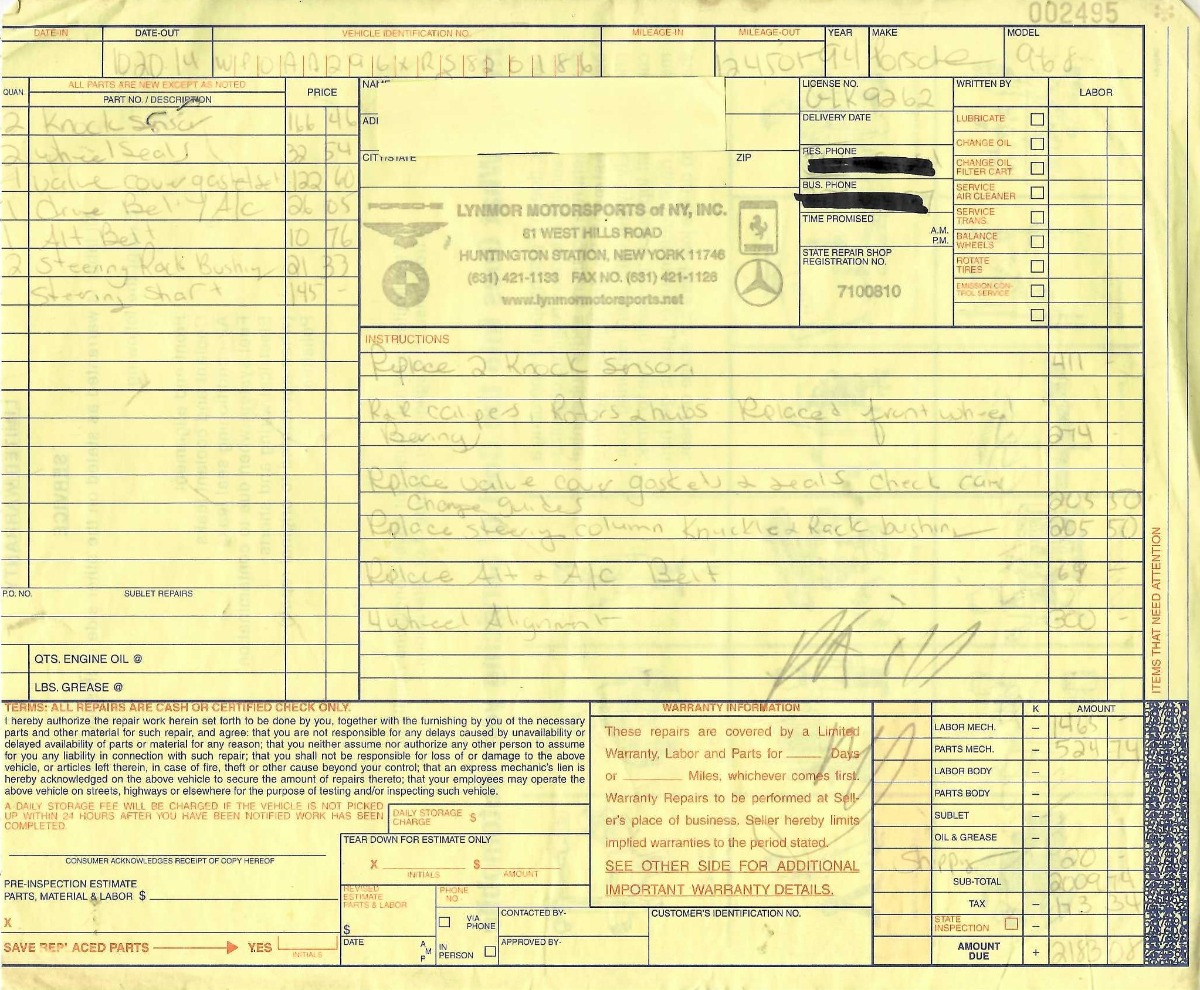 002495
DATE-IN DATE-OUT VEHICLE IDENTIFICATION NO. MILEAGE-IN MILEAGE-OUT YEAR MAKE MODEL
94 Porsche 968
QUAN. ALL PARTS ARE NEW EXCEPT AS NOTED
PART NO. / DESCRIPTION PRICE
2 Knock Sensor 166 46
2 wheel Seals 32 54
1 valve cover gasket set 122 60
1 Drive Belt A/C 26 05
1 Alt Belt 10 76
2 Steering Rack Bushing 21 33
Steering Shaft 145 -
P.O. NO. SUBLET REPAIRS
QTS. ENGINE OIL @
LBS. GREASE @
CITY/STATE ZIP
LYNMOR MOTORSPORTS of NY, INC.
61 WEST HILLS ROAD
HUNTINGTON STATION, NEW YORK 11746
(631) 421-1133 FAX NO. (631) 421-1126
www.lynmormotorsports.net
LICENSE NO.
DELIVERY DATE
RES. PHONE
BUS. PHONE
TIME PROMISED
A.M.
P.M.
STATE REPAIR SHOP
REGISTRATION NO.
7100810
WRITTEN BY LABOR
LUBRICATE
CHANGE OIL
CHANGE OIL
FILTER CART
SERVICE
AIR CLEANER
SERVICE
TRANS.
BALANCE
WHEELS
ROTATE
TIRES
EMISSION CON-
TROL SERVICE
INSTRUCTIONS
Replace 2 Knock Sensors 411 -
R&R calipers, Rotors & hubs Replaced front wheel
Bearing 274 -
Replace valve cover gaskets & seals, check cam
Change guides 205 50
Replace steering column Knuckle & Rack bushing 205 50
Replace Alt & A/C Belt 69 -
4 wheel Alignment 300 -
ITEMS THAT NEED ATTENTION
TERMS: ALL REPAIRS ARE CASH OR CERTIFIED CHECK ONLY.
I hereby authorize the repair work herein set forth to be done by you, together with the furnishing by you of the necessary
parts and other material for such repair, and agree: that you are not responsible for any delays caused by unavailability or
delayed availability of parts or material for any reason; that you neither assume nor authorize any other person to assume
for you any liability in connection with such repair; that you shall not be responsible for loss of or damage to the above
vehicle, or articles left therein, in case of fire, theft or other cause beyond your control; that an express mechanic's lien is
hereby acknowledged on the above vehicle to secure the amount of repairs thereto; that your employees may operate the
above vehicle on streets, highways or elsewhere for the purpose of testing and/or inspecting such vehicle.
A DAILY STORAGE FEE WILL BE CHARGED IF THE VEHICLE IS NOT PICKED
UP WITHIN 24 HOURS AFTER YOU HAVE BEEN NOTIFIED WORK HAS BEEN
COMPLETED.
DAILY STORAGE
CHARGE $
CONSUMER ACKNOWLEDGES RECEIPT OF COPY HEREOF
PRE-INSPECTION ESTIMATE
PARTS, MATERIAL & LABOR $
X
SAVE REPLACED PARTS YES
INITIALS
TEAR DOWN FOR ESTIMATE ONLY
X $
INITIALS AMOUNT
REVISED
ESTIMATE
PARTS & LABOR
$
DATE A M P
PHONE
NO.
VIA
PHONE
IN
PERSON
CONTACTED BY-
APPROVED BY-
WARRANTY INFORMATION
These repairs are covered by a Limited
Warranty, Labor and Parts for Days
or Miles, whichever comes first.
Warranty Repairs to be performed at Sell-
er's place of business. Seller hereby limits
implied warranties to the period stated.
SEE OTHER SIDE FOR ADDITIONAL
IMPORTANT WARRANTY DETAILS.
CUSTOMER'S IDENTIFICATION NO.
K AMOUNT
LABOR MECH. – 1465 -
PARTS MECH. – 524 74
LABOR BODY –
PARTS BODY –
SUBLET –
OIL & GREASE –
Shipping 20 -
SUB-TOTAL 2009 74
TAX – 173 34
STATE
INSPECTION
AMOUNT
DUE + 2183 08